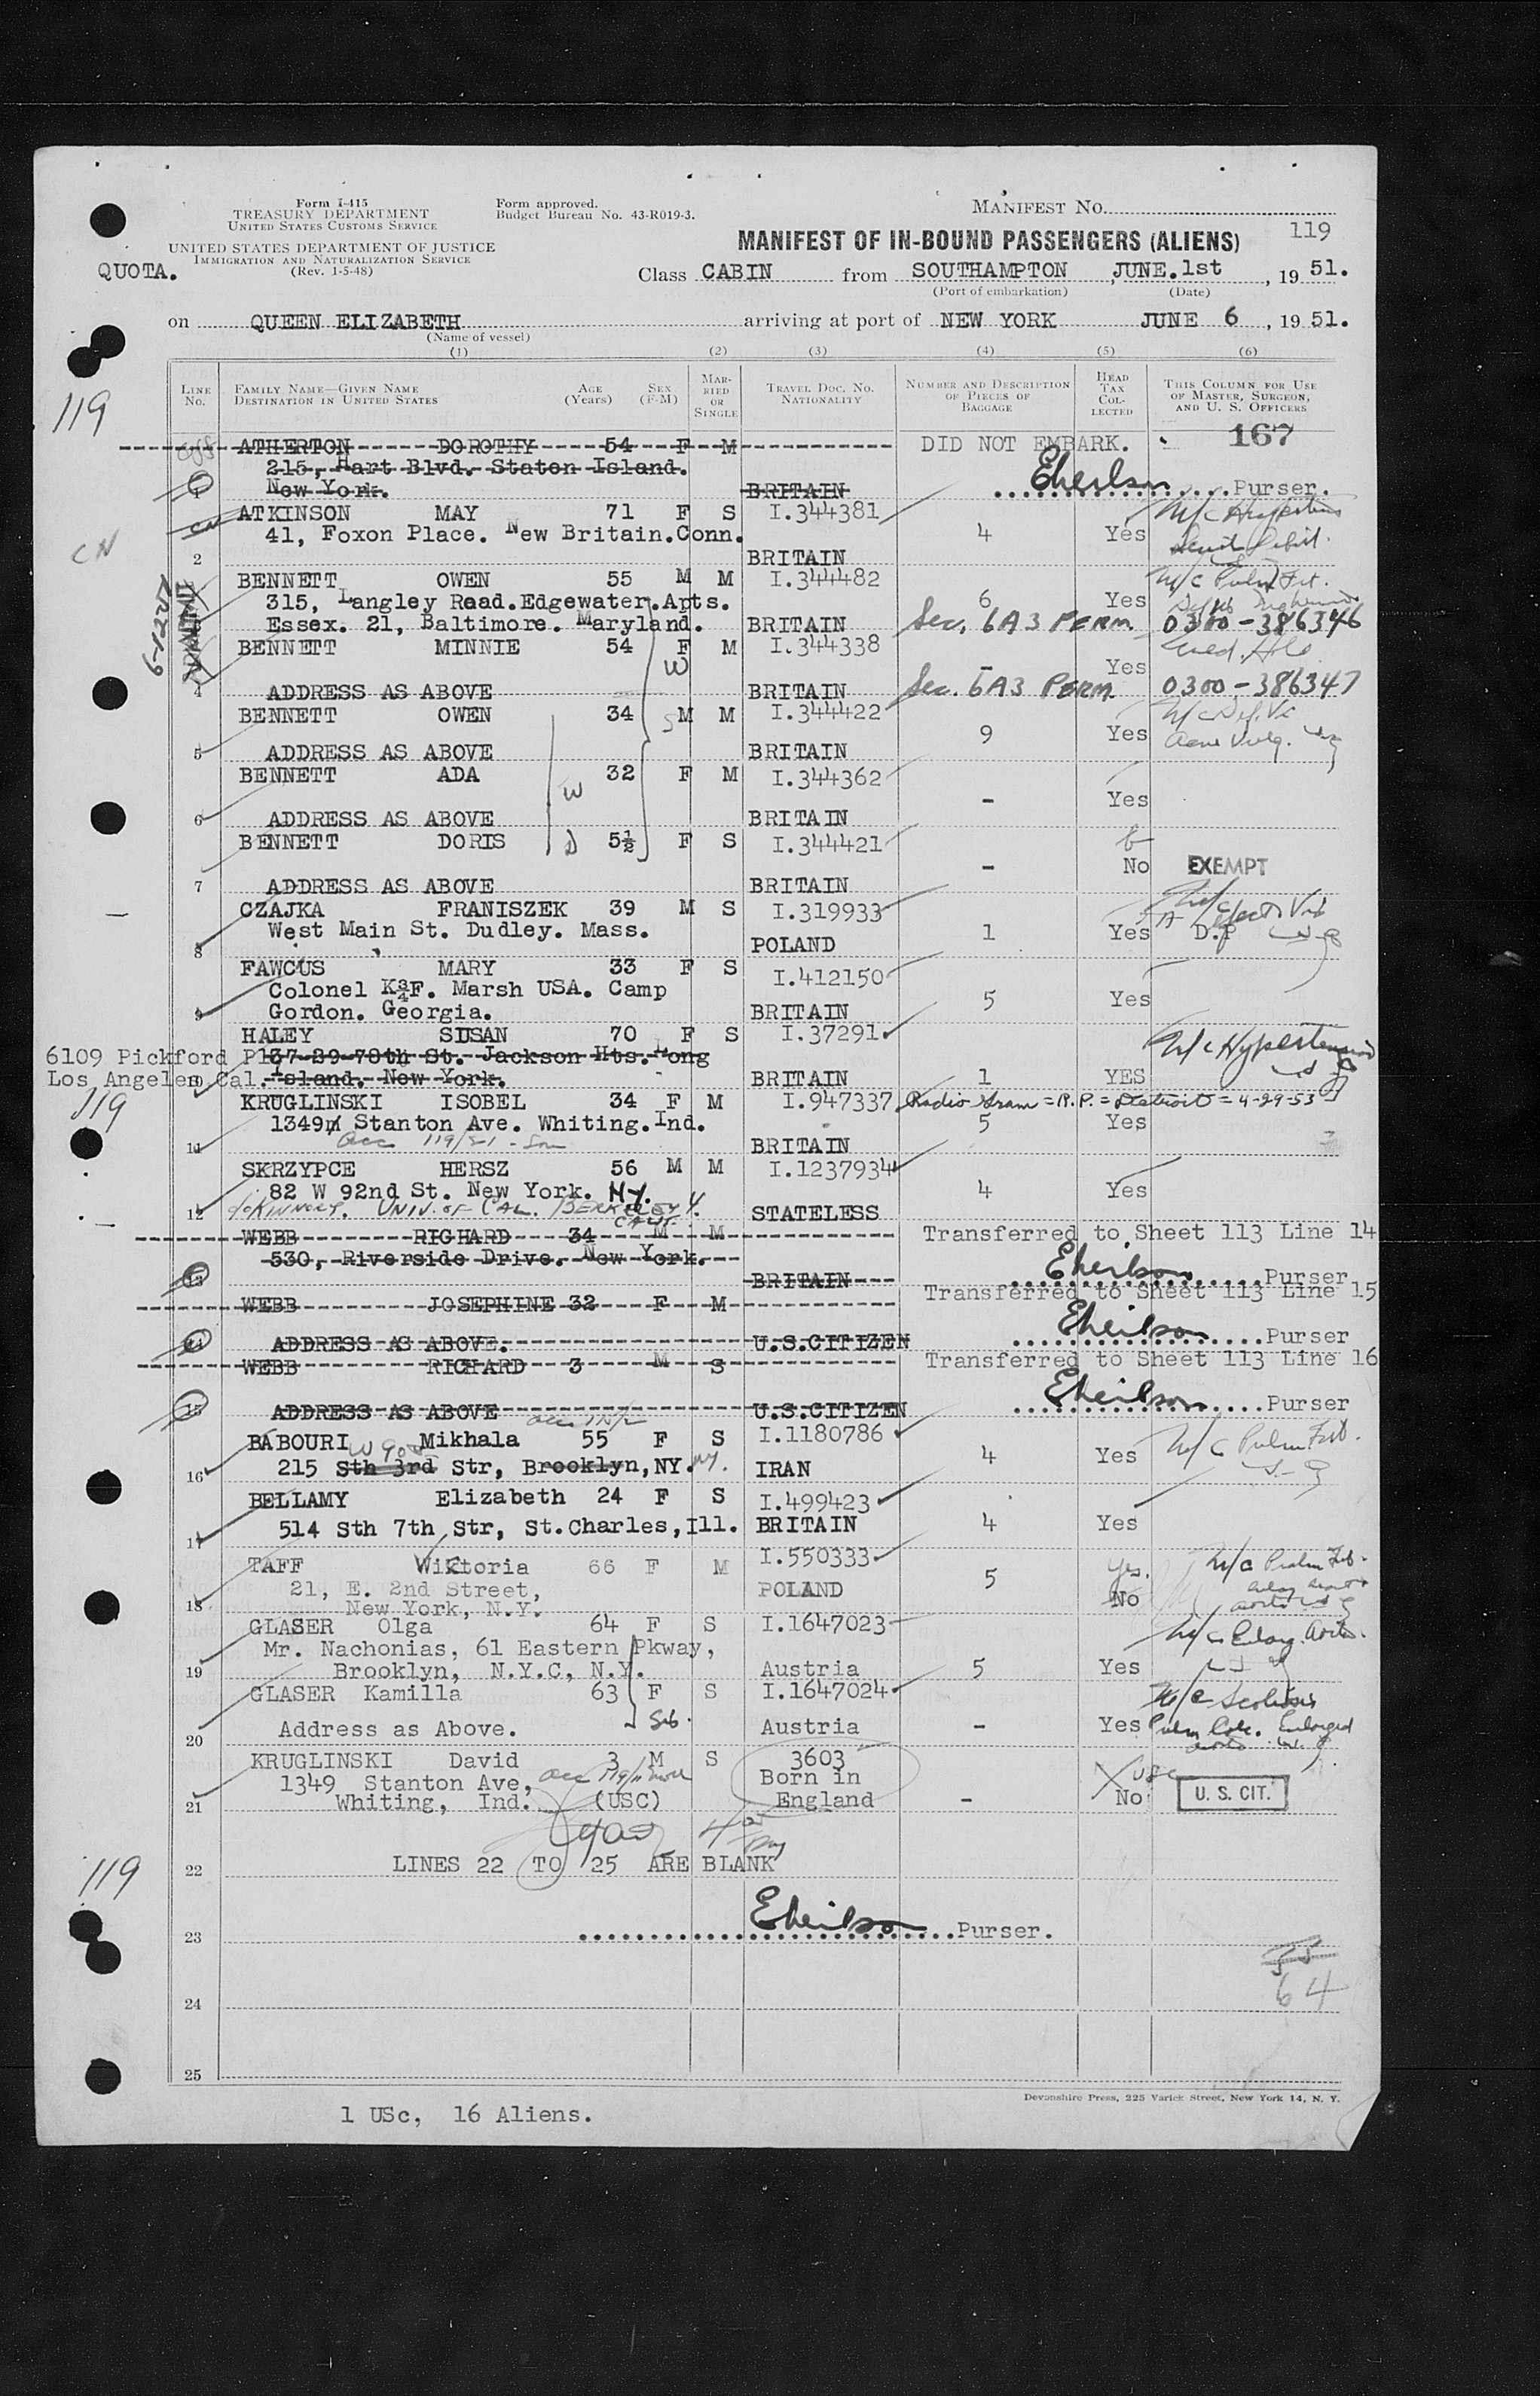 Form I-415
TREASURY DEPARTMENT
UNITED STATES CUSTOMS SERVICE
Form approved.
Budget Bureau No. 43-R019-3.
MANIFEST NO.
UNITED STATES DEPARTMENT OF JUSTICE
IMMIGRATION AND NATURALIZATION SERVICE
(Rev. 1-5-48)
QUOTA.
MANIFEST OF IN-BOUND PASSENGERS (ALIENS) 119
Class CABIN from SOUTHAMPTON, JUNE.1st, 19 51.
(Port of embarkation) (Date)
on QUEEN ELIZABETH arriving at port of NEW YORK JUNE 6, 19 51.
(Name of vessel)
(1) (2) (3) (4) (5) (6)
LINE NO. FAMILY NAME—GIVEN NAME DESTINATION IN UNITED STATES AGE (Years) SEX (F-M) MARRIED OR SINGLE TRAVEL DOC. NO. NATIONALITY NUMBER AND DESCRIPTION OF PIECES OF BAGGAGE HEAD TAX COLLECTED THIS COLUMN FOR USE OF MASTER, SURGEON, AND U. S. OFFICERS
119
167
ATHERTON DOROTHY 54 F M DID NOT EMBARK.
215, Hart Blvd. Staton Island.
New York. BRITAIN Purser.
ATKINSON MAY 71 F S I.344381
41, Foxon Place. New Britain.Conn. 4 Yes
CN
2 BRITAIN
BENNETT OWEN 55 M M I.344482
315, Langley Road.Edgewater.Apts. 6 Yes
Essex. 21, Baltimore. Maryland. BRITAIN Sec. 6A3 PERM 0300-386346
BENNETT MINNIE 54 F M I.344338
- Yes
4 ADDRESS AS ABOVE BRITAIN Sec. 6A3 PERM 0300-386347
BENNETT OWEN 34 M M I.344422
9 Yes
5 ADDRESS AS ABOVE BRITAIN
BENNETT ADA 32 F M I.344362
- Yes
6 ADDRESS AS ABOVE BRITAIN
BENNETT DORIS 5½ F S I.344421
- No EXEMPT
7 ADDRESS AS ABOVE BRITAIN
CZAJKA FRANISZEK 39 M S I.319933
West Main St. Dudley. Mass. 1 Yes D.P
8 POLAND
FAWCUS MARY 33 F S I.412150
Colonel K F. Marsh USA. Camp 5 Yes
9 Gordon. Georgia. BRITAIN
HALEY SUSAN 70 F S I.37291
6109 Pickford Pl 37-29-78th St. Jackson Hts. Long M/c Hypertension
Los Angeles Cal. Island. New York. BRITAIN 1 YES
119
KRUGLINSKI ISOBEL 34 F M I.947337 Radio Gram = R.P. = Detroit = 4-29-53
1349 Stanton Ave. Whiting.Ind. 5 Yes
11 BRITAIN
SKRZYPCE HERSZ 56 M M I.1237934
82 W 92nd St. New York. N.Y. 4 Yes
12 UNIV. OF CAL. BERKELEY 4. CALIF. STATELESS
WEBB RICHARD 34 M M Transferred to Sheet 113 Line 14
530, Riverside Drive. New York.
13 BRITAIN Purser
WEBB JOSEPHINE 32 F M Transferred to Sheet 113 Line 15
14 ADDRESS AS ABOVE. U.S.CITIZEN Purser
WEBB RICHARD 3 M S Transferred to Sheet 113 Line 16
15 ADDRESS AS ABOVE U.S.CITIZEN Purser
BABOURI Mikhala 55 F S I.1180786
16 215 Sth 3rd Str, Brooklyn, NY. IRAN 4 Yes
BELLAMY Elizabeth 24 F S I.499423
17 514 Sth 7th Str, St.Charles,Ill. BRITAIN 4 Yes
TAFF Wiktoria 66 F M I.550333
21, E. 2nd Street, POLAND 5 Yes. No
18 New York, N.Y.
GLASER Olga 64 F S I.1647023
Mr. Nachonias, 61 Eastern Pkway,
19 Brooklyn, N.Y.C, N.Y. Austria 5 Yes
GLASER Kamilla 63 F S I.1647024
20 Address as Above. Austria - Yes
KRUGLINSKI David 3 M S 3603
1349 Stanton Ave, Born in
21 Whiting, Ind. (USC) England - No U. S. CIT.
22 LINES 22 TO 25 ARE BLANK
119
23 Purser.
24 64
25
Devonshire Press, 225 Varick Street, New York 14, N. Y.
1 USc, 16 Aliens.